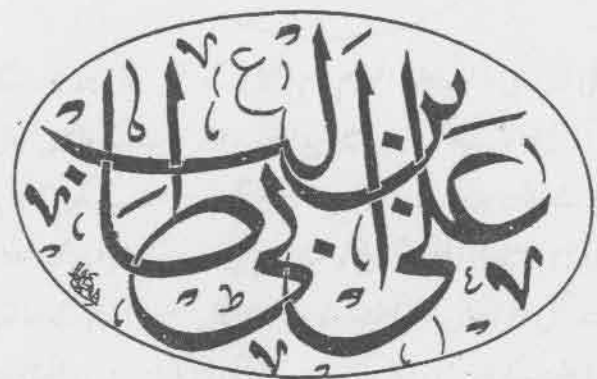 علي بن أبي طالب
ع